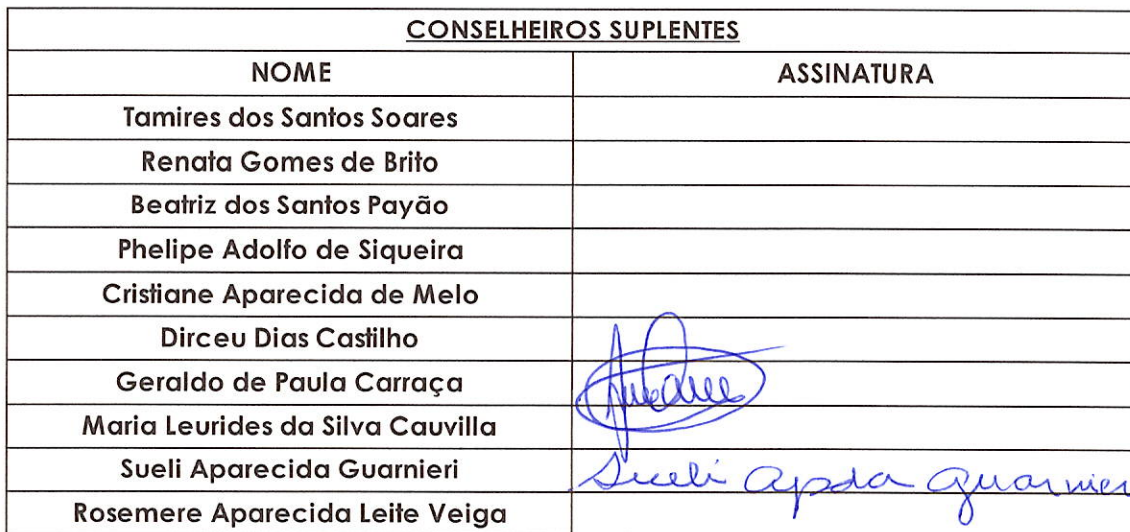 CONSELHEIROS SUPLENTES
NOME ASSINATURA
Tamires dos Santos Soares
Renata Gomes de Brito
Beatriz dos Santos Payão
Phelipe Adolfo de Siqueira
Cristiane Aparecida de Melo
Dirceu Dias Castilho
Geraldo de Paula Carraça
Maria Leurides da Silva Cauvilla
Sueli Aparecida Guarnieri Sueli Apda Guarnier
Rosemere Aparecida Leite Veiga